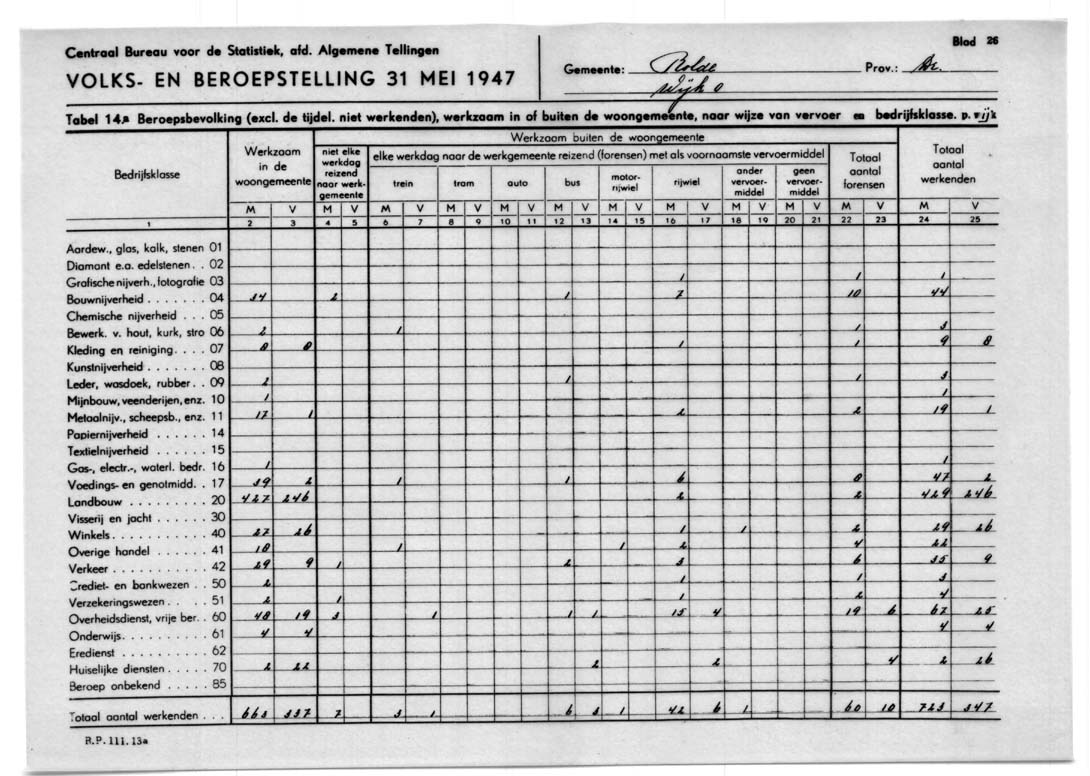 Centraal Bureau voor de Statistiek, afd. Algemene Tellingen
Blad 26
VOLKS- EN BEROEPSTELLING 31 MEI 1947
Gemeente: Rolde Prov.: Dr.
Wijk 0
Tabel 14.a Beroepsbevolking (excl. de tijdel. niet werkenden), werkzaam in of buiten de woongemeente, naar wijze van vervoer en bedrijfsklasse. p. wijk
Bedrijfsklasse
Werkzaam in de woongemeente
Werkzaam buiten de woongemeente
niet elke werkdag reizend naar werkgemeente
elke werkdag naar de werkgemeente reizend (forensen) met als voornaamste vervoermiddel
trein tram auto bus motor-rijwiel rijwiel ander vervoer-middel geen vervoer-middel
Totaal aantal forensen
Totaal aantal werkenden
M V M V M V M V M V M V M V M V M V M V M V M V
1 2 3 4 5 6 7 8 9 10 11 12 13 14 15 16 17 18 19 20 21 22 23 24 25
Aardew., glas, kalk, stenen 01
Diamant e.a. edelstenen . . 02
Grafische nijverh., fotografie 03 1 1 1
Bouwnijverheid . . . . . . . 04 34 2 1 7 10 44
Chemische nijverheid . . . 05
Bewerk. v. hout, kurk, stro 06 2 1 1 3
Kleding en reiniging. . . . 07 8 8 1 1 9 8
Kunstnijverheid . . . . . . . 08
Leder, wasdoek, rubber. . 09 2 1 1 3
Mijnbouw, veenderijen, enz. 10 1 1
Metaalnijv., scheepsb., enz. 11 17 1 2 2 19 1
Papiernijverheid . . . . . . 14
Textielnijverheid . . . . . . 15
Gas-, electr.-, waterl. bedr. 16 1 1
Voedings- en genotmidd. . 17 39 2 1 1 6 8 47 2
Landbouw . . . . . . . . . 20 427 246 2 2 429 246
Visserij en jacht . . . . . . 30
Winkels. . . . . . . . . . . 40 27 26 1 1 2 29 26
Overige handel . . . . . . 41 18 1 1 2 4 22
Verkeer . . . . . . . . . . . 42 29 9 1 2 3 6 35 9
Crediet- en bankwezen . . 50 2 1 1 3
Verzekeringswezen. . . . 51 2 1 1 2 4
Overheidsdienst, vrije ber. . 60 48 19 3 1 1 1 15 4 19 6 67 25
Onderwijs. . . . . . . . . . 61 4 4 4 4
Eredienst . . . . . . . . . 62
Huiselijke diensten . . . . . 70 2 22 2 2 4 2 26
Beroep onbekend . . . . . 85
Totaal aantal werkenden . . . 663 337 7 3 1 6 3 1 42 6 1 60 10 723 347
R.P. 111. 13a